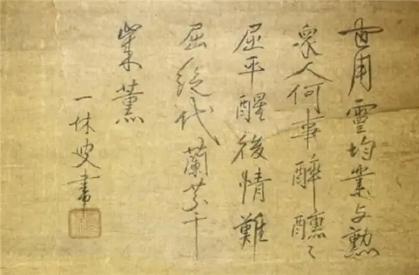 用靈均業与勲
衆人何事醉醺〻
屈平醒後情難
屈絶代蘭芬千
薫
一休叟書